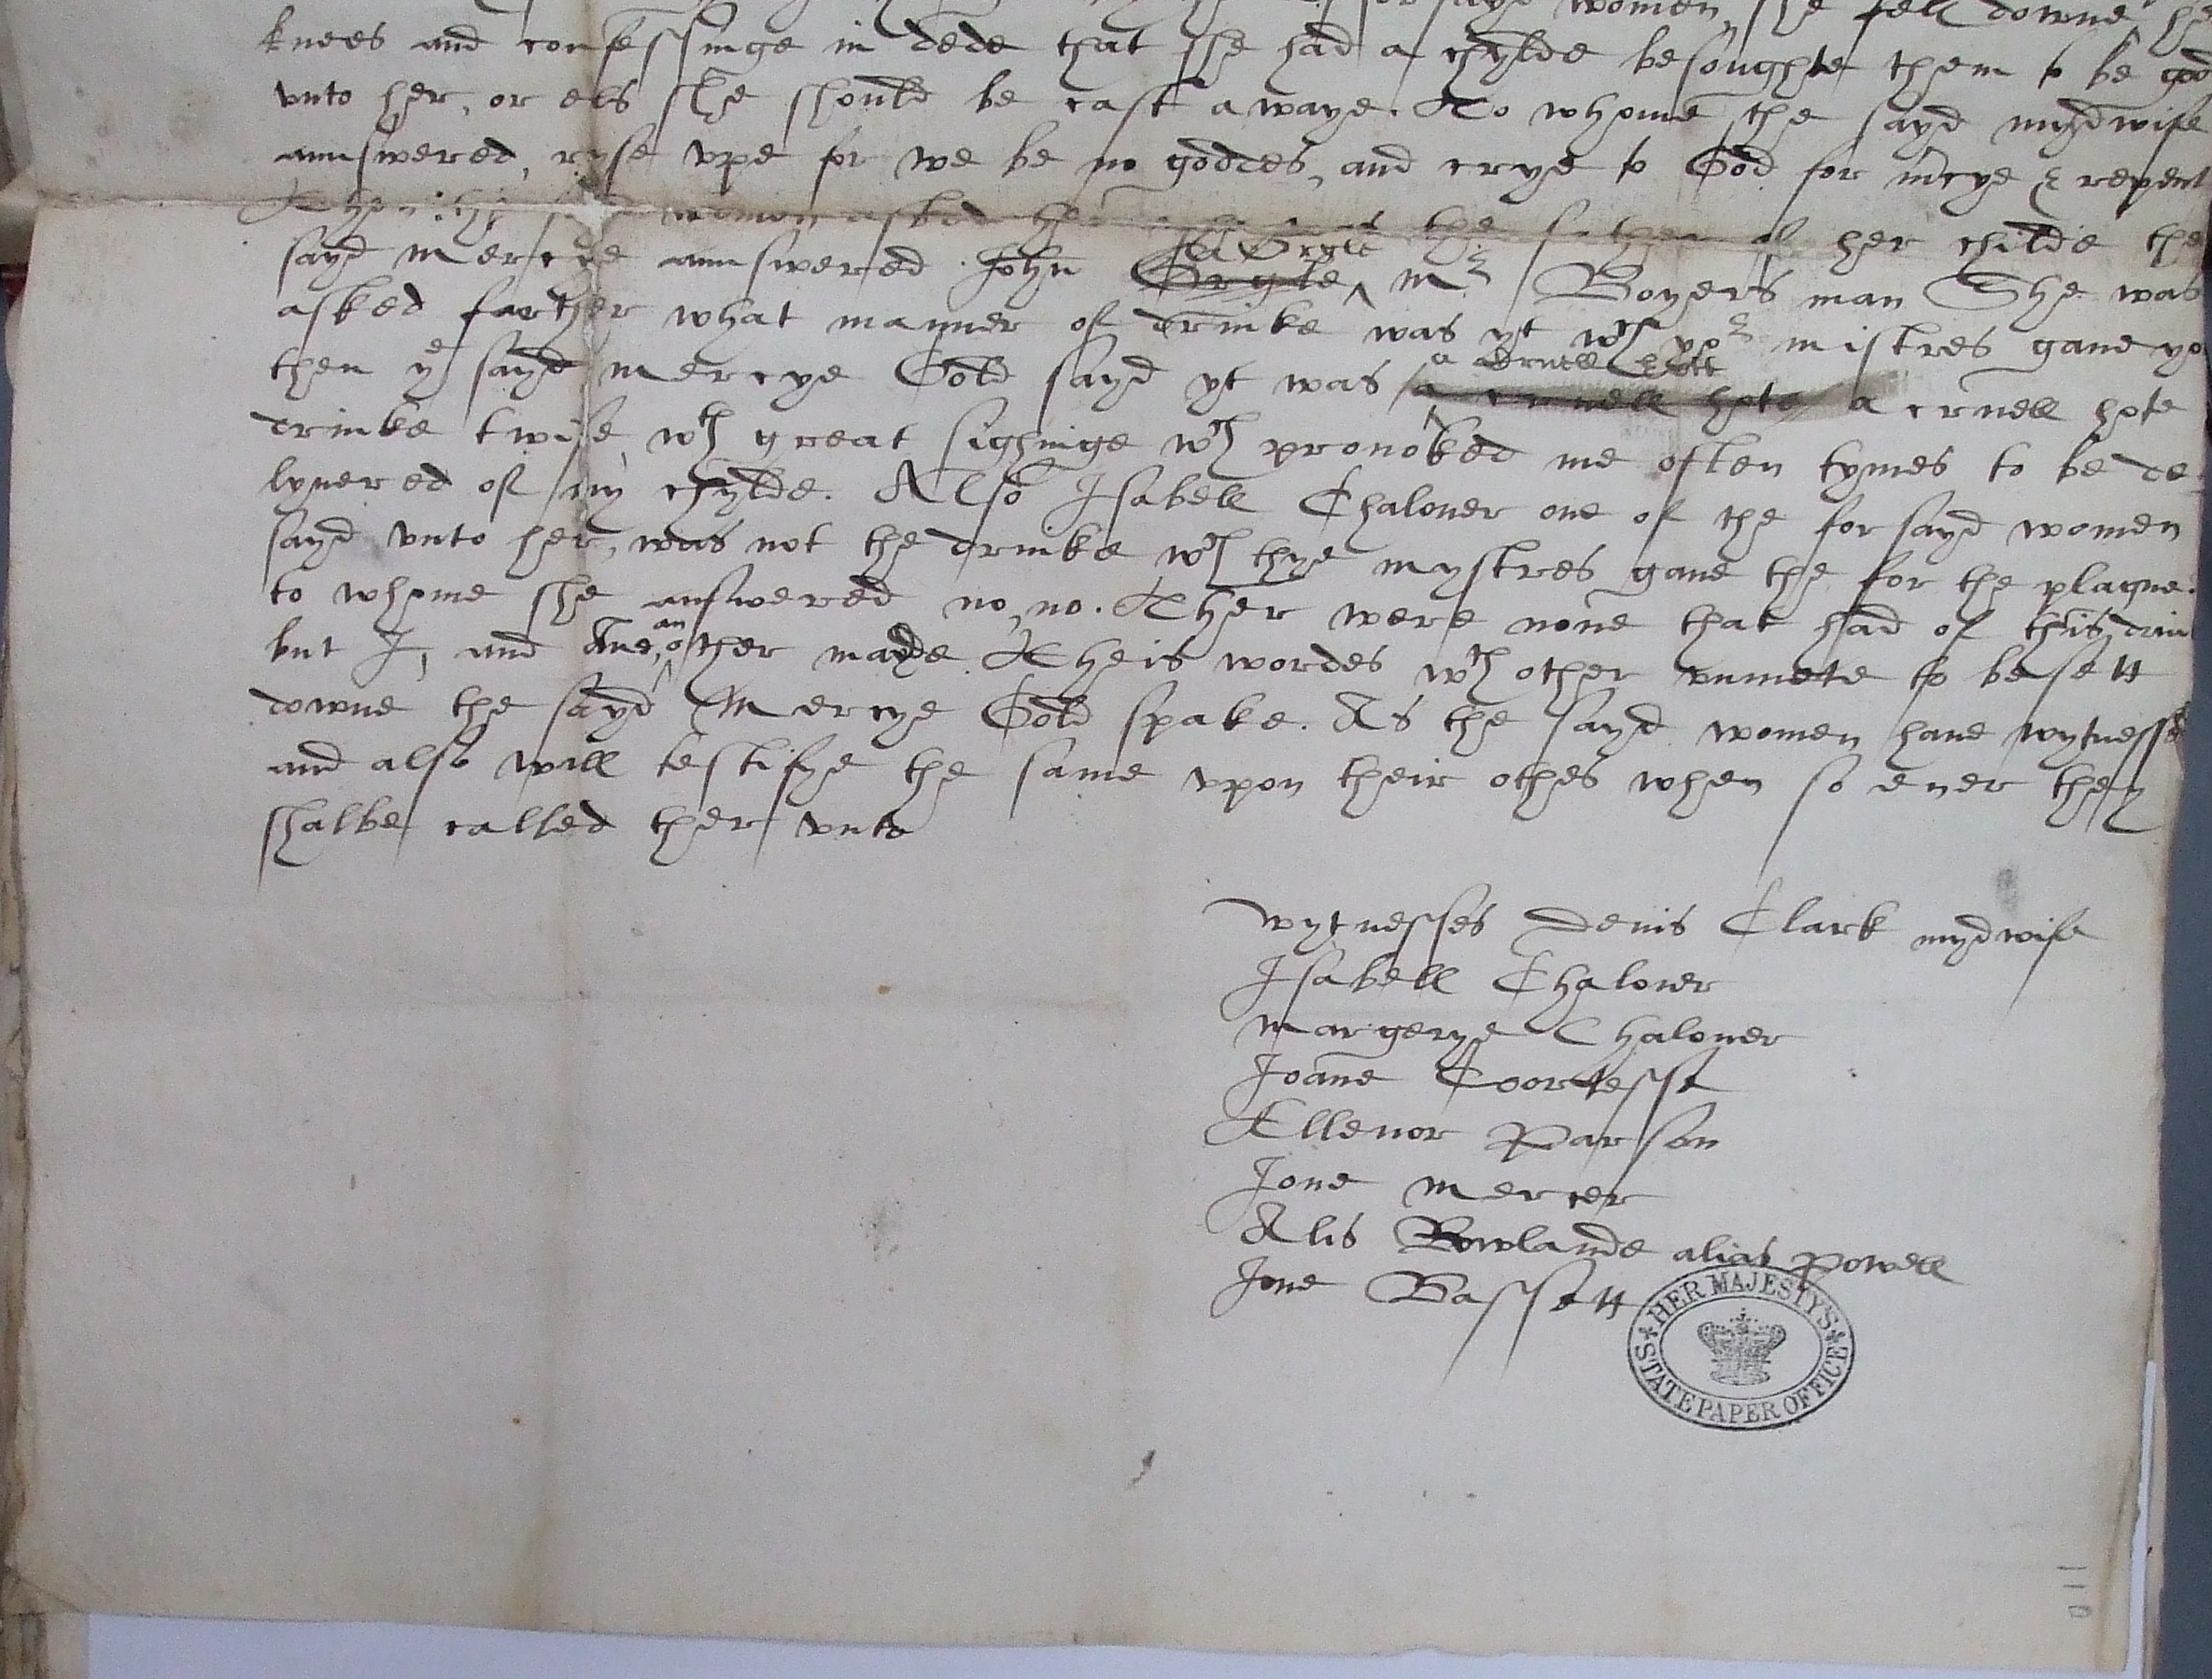 forsayd women, she fell downe
knees and confessinge in dede that she had a chylde besoughte them to be god
vnto her, or els she should be cast awaye. To whome the sayd mydwife
aunswered, ryse vpe for we be no goddes, and crye to God for mcye & repent
Then the women asked her the father of her childe the
sayd Mercie aunswered John mr Boyers man She was
asked farther what manner of drinke was yt wch yor mistres gaue yo
then ye sayd mercye Gold sayd yt was a cruell hott a cruell hote a cruell hote
drinke twise, wth great sighinge wch prouoked me often tymes to be de
lyuered of my chylde. Also Isabell Chaloner one of the forsayd women
sayd vnto her, was not the drinke wch thye mystres gaue the for the plague.
to whome she answered no, no. Ther were none that had of this drin
but I, and Ane, an other mayde. Theis wordes wth other vnmete to be sett
downe the sayd Mercye Gold spake. As the sayd women haue wytnessed
and also will testifye the same vpon their othes when so euer they
shalbe called ther vnto
wytnesses Denis Clark mydwife
Isabell Chaloner
Margerye Chaloner
Joane Coortesse
Ellenor Parson
Jone mercer
Alis Rowlande alias Powell
Jone Bassett
HER MAJESTY'S STATE PAPER OFFICE
110